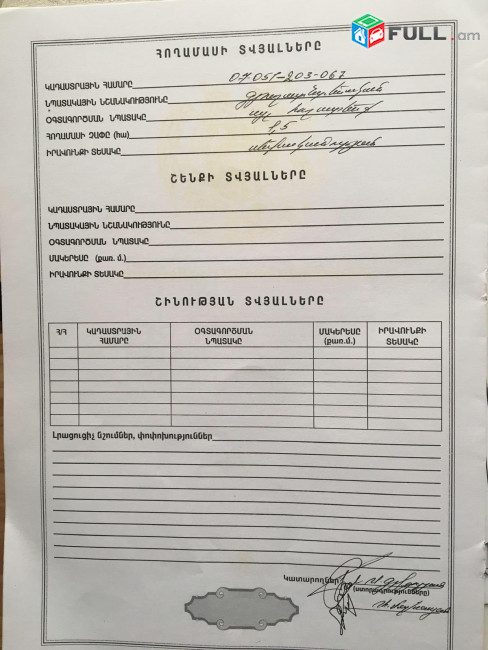 FULL.am
ՀՈՂԱՄԱՍԻ ՏՎՅԱԼՆԵՐԸ
ԿԱԴԱՍՏՐԱՅԻՆ ՀԱՄԱՐԸ 07051-203-067
ՆՊԱՏԱԿԱՅԻՆ ՆՇԱՆԱԿՈՒԹՅՈՒՆԸ գյուղատնտեսական
ՕԳՏԱԳՈՐԾՄԱՆ ՆՊԱՏԱԿԸ այլ հողատեսք
ՀՈՂԱՄԱՍԻ ՉԱՓԸ (հա)
ԻՐԱՎՈՒՆՔԻ ՏԵՍԱԿԸ սեփականության
ՇԵՆՔԻ ՏՎՅԱԼՆԵՐԸ
ԿԱԴԱՍՏՐԱՅԻՆ ՀԱՄԱՐԸ
ՆՊԱՏԱԿԱՅԻՆ ՆՇԱՆԱԿՈՒԹՅՈՒՆԸ
ՕԳՏԱԳՈՐԾՄԱՆ ՆՊԱՏԱԿԸ
ՄԱԿԵՐԵՍԸ (քառ. մ.)
ԻՐԱՎՈՒՆՔԻ ՏԵՍԱԿԸ
ՇԻՆՈՒԹՅԱՆ ՏՎՅԱԼՆԵՐԸ
Հ/Հ ԿԱԴԱՍՏՐԱՅԻՆ ՕԳՏԱԳՈՐԾՄԱՆ ՄԱԿԵՐԵՍԸ ԻՐԱՎՈՒՆՔԻ
ՀԱՄԱՐԸ ՆՊԱՏԱԿԸ (քառ.մ.) ՏԵՍԱԿԸ
Լրացուցիչ նշումներ, փոփոխություններ
Կատարողներ
(ստորագրությունները)